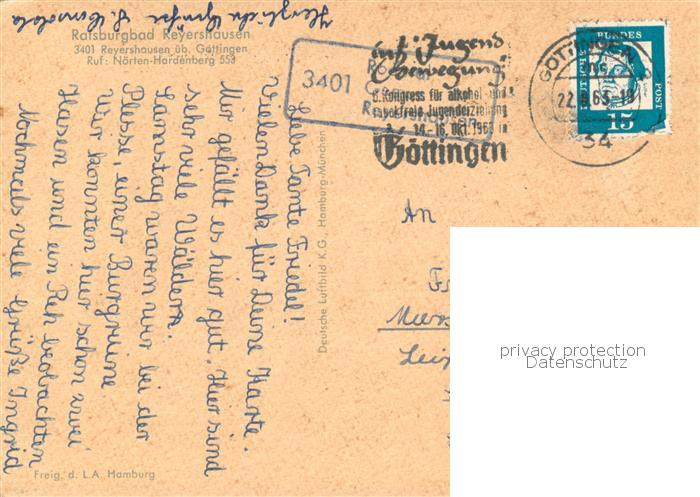 Ratsburgbad Reyershausen
3401 Reyershausen üb. Göttingen
Ruf: Nörten-Hardenberg 553
Liebe Tante Friedel!
Vielen Dank für Deine Karte.
Mir gefällt es hier gut. Hier sind
sehr viele Wälder.
Samstag waren wir bei der
Plesse, einer Burgruine.
Wir konnten hier schon zwei
Hasen und ein Reh beobachten
Nochmals viele Grüße Ingrid
Herzliche Grüße
Deutsche Luftbild K.G., Hamburg-München
Freig. d. L.A. Hamburg
3401
int. Jugend
Bewegung
Kongress für alkohol- und
tabakfreie Jugenderziehung
14.-16. Okt. 1963 in
Göttingen
GÖTTINGEN
22.8.63-18
34
BUNDES
POST
15
An
privacy protection
Datenschutz